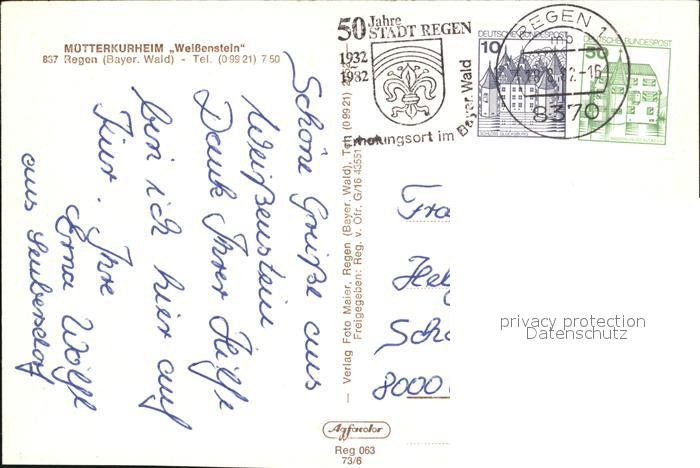 MÜTTERKURHEIM „Weißenstein"
837 Regen (Bayer. Wald) - Tel. (0 99 21) 7 50
Schöne Grüße aus
Weißenstein
Dank Ihrer Hilfe
bin ich hier auf
Kur. Ihre
Erna Wölfl
aus
— Verlag Foto Maier, Regen (Bayer. Wald), Tel. (0 99 21)
Freigegeben: Reg. v. Ofr. G/16 43551
50 Jahre
STADT REGEN
1932
1982
Erholungsort im
Bayer. Wald
REGEN 1
mb
-16
8370
10 DEUTSCHE BUNDESPOST
SCHLOSS GLÜCKSBURG
50 DEUTSCHE BUNDESPOST
Fra
Hel
Sch
8000
privacy protection
Datenschutz
Agfacolor
Reg 063
73/6